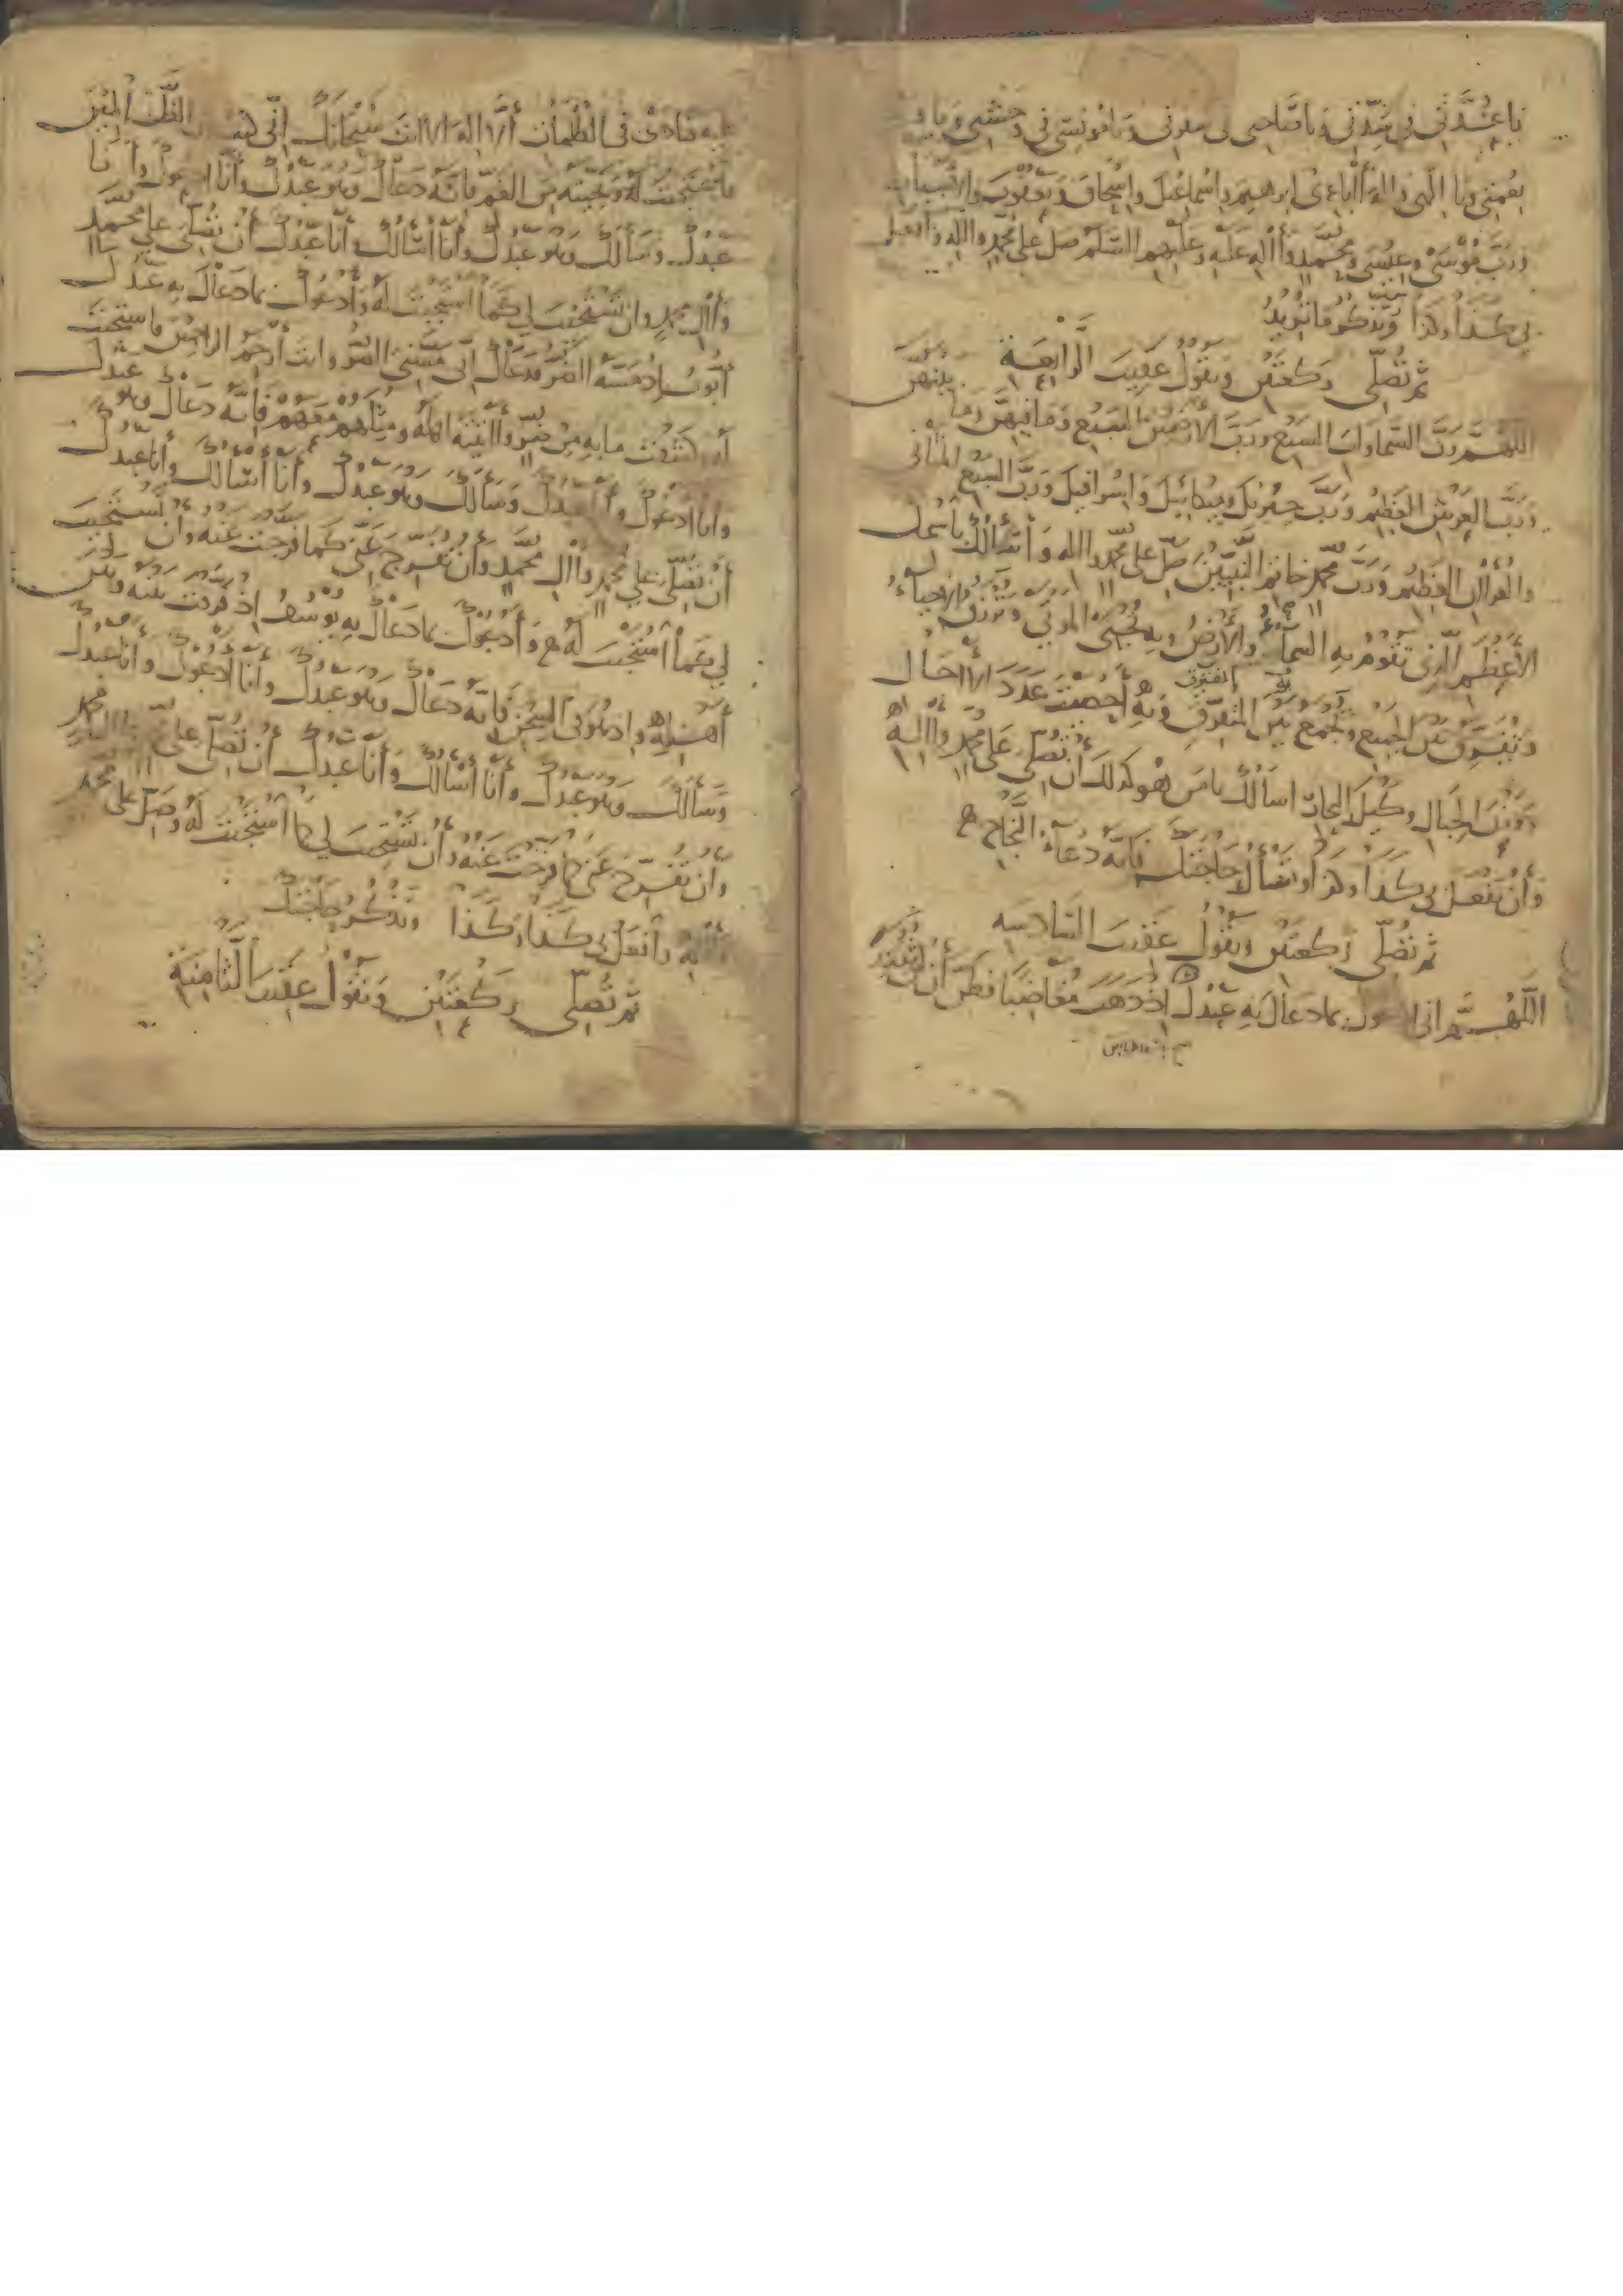 يا عُدَّتي في شِدَّتي ويا صاحبي في ويا مونسي في وحشتي ويا
نعمتي ويا الهي واله اباءي ابرهيم واسماعيل واسحاق ويعقوب والاسباط
ورب موسى وعيسى ومحمد واله عليه وعليهم السلم صل على محمد واله وافعل
بي كذا وكذا وتذكر ما تريد
ثم تصلى ركعتين وتقول عقيب الرابعة
اللهم رب السماوات السبع ورب الارضين السبع وما فيهن وما بينهن
ورب العرش العظيم ورب جبرئيل وميكائيل واسرافيل ورب السبع المثاني
والقراان العظيم ورب محمد خاتم النبيين صل على محمد واله واسالك باسمك
الاعظم الذي تقوم به السماء والارض وبه تحيي الموتى وترزق الاحياء
وتفرق بين الجميع وتجمع بين المتفرق وبه احصيت عدد الااجال
ووزن الجبال وكيل البحار اسالك يامن هو كذلك ان تصلي على محمد واله
وان تفعل بي كذا وكذا وتسأل حاجتك فانه دعاء النجاح
ثم تصلى ركعتين وتقول عقيب السادسه
اللهم اني ادعوك بما دعاك به عبدك اذ ذهب مغاضبا فظن ان لن نقدر
عليه فنادى في الظلمات ان لا اله الا انت سبحانك اني كنت من الظالمين
فاستجبت له ونجيته من الغم فانه دعاك وهو عبدك وانا ادعوك وانا
عبدك وسألك وهو عبدك وانا اسألك وانا عبدك ان تصلي على محمد
واال محمد وان تستجيب لي كما استجبت له وادعوك بما دعاك به عبدك
أيوب اذ مسه الضر فدعاك اني مسني الضر وانت ارحم الراحمين فاستجبت
له وكشفت ما به من ضر وااتيته اهله ومثلهم معهم فانه دعاك وهو عبدك
وانا ادعوك وانا عبدك وسألك وهو عبدك وانا اسالك وانا عبدك
أن تصلى على محمد واال محمد وان تفرج عني كما فرجت عنه وان تستجيب
لي كما استجبت له وادعوك بما دعاك به يوسف اذ فرقت بينه وبين
أهله واذ هو في السجن فانه دعاك وهو عبدك وانا ادعوك وانا عبدك
وسألك وهو عبدك وانا اسألك وانا عبدك ان تصلي على محمد واال محمد
وان تفرج عني كما فرجت عنه وان تستجيب لي كما استجبت له وصل على محمد
واله وافعل بي كذا وكذا وتذكر حاجتك
ثم تصلى ركعتين وتقول عقيب الثامنة